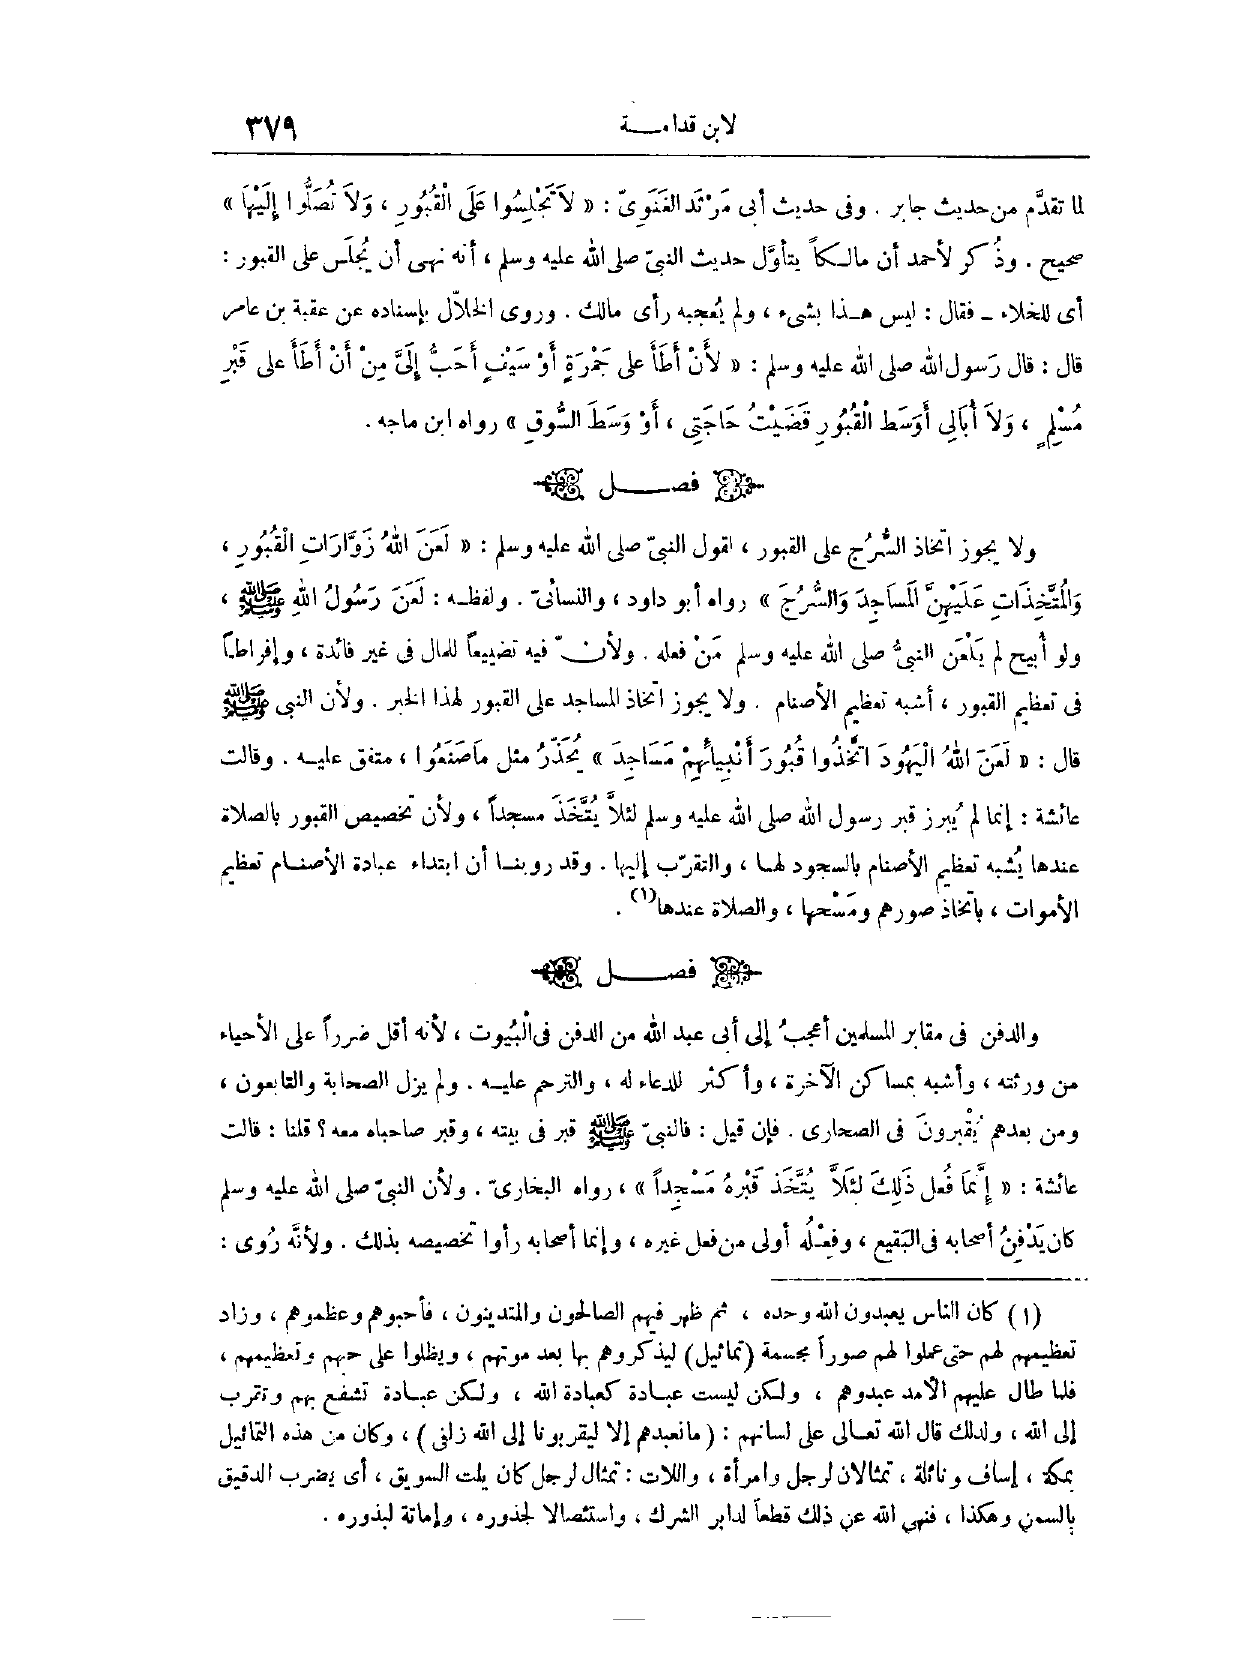 لابن قدامة ٣٧٩
لما تقدَّم من حديث جابر . وفى حديث أبى مَرْثَد الغَنَوِىّ : « لاَ تَجْلِسُوا عَلَى الْقُبُورِ ، وَلاَ تُصَلُّوا إِلَيْهَا »
صحيح . وذُكر لأحمد أن مالكاً يتأوّل حديث النبىّ صلى الله عليه وسلم ، أنه نهى أن يُجلَس على القبور :
أى للخلاء ــ فقال : ليس هذا بشىء ، ولم يُعجبه رأى مالك . وروى الخلاّل بإسناده عن عقبة بن عامر
قال : قال رَسول الله صلى الله عليه وسلم : « لأَنْ أَطَأَ على جَمْرَةٍ أَوْ سَيْفٍ أَحَبُّ إِلَىَّ مِنْ أَنْ أَطَأَ على قَبْرِ
مُسْلِمٍ ، وَلاَ أُبَالِى أَوَسَط الْقُبُورِ قَضَيْتُ حَاجَتِى ، أَوْ وَسَطَ السُّوقِ » رواه ابن ماجه .
فصل
ولا يجوز اتخاذ السُّرُج على القبور ، لقول النبىّ صلى الله عليه وسلم : « لَعَنَ اللهُ زَوَّارَاتِ الْقُبُورِ ،
وَالْمُتَّخِذَاتِ عَلَيْهِنَّ الْمَسَاجِدَ وَالسُّرُجَ » رواه أبو داود ، والنسائىّ . ولفظه : لَعَنَ رَسُولُ اللهِ ﷺ ،
ولو أُبيح لم يَلْعَن النبىُّ صلى الله عليه وسلم مَنْ فعله . ولأن فيه تضييعاً للمال فى غير فائدة ، وإفراطاً
فى تعظيم القبور ، أشبه تعظيم الأصنام . ولا يجوز اتخاذ المساجد على القبور لهذا الخبر . ولأن النبى ﷺ
قال : « لَعَنَ اللهُ الْيَهُودَ اتَّخَذُوا قُبُورَ أَنْبِيَائِهِمْ مَسَاجِدَ » يُحَذِّرُ مثل مَا صَنَعُوا ، متفق عليه . وقالت
عائشة : إنما لم يُبرز قبر رسول الله صلى الله عليه وسلم لئلاَّ يُتَّخَذَ مسجداً ، ولأن تخصيص القبور بالصلاة
عندها يُشبه تعظيم الأصنام بالسجود لها ، والتقرّب إليها . وقد روينا أن ابتداء عبادة الأصنام تعظيم
الأموات ، باتخاذ صورهم ومَسْحها ، والصلاة عندها(١) .
فصل
والدفن فى مقابر المسلمين أعجبُ إلى أبى عبد الله من الدفن فى الْبُيوت ، لأنه أقل ضرراً على الأحياء
من ورثته ، وأشبه بمساكن الآخرة ، وأكثر للدعاء له ، والترحم عليه . ولم يزل الصحابة والتابعون ،
ومن بعدهم يُقْبرونَ فى الصحارى . فإن قيل : فالنبىّ ﷺ قبر فى بيته ، وقبر صاحباه معه ؟ قلنا : قالت
عائشة : « إِنَّمَا فُعل ذَلِكَ لِئَلاَّ يُتَّخَذ قَبْرهُ مَسْجِداً » ، رواه البخارىّ . ولأن النبىّ صلى الله عليه وسلم
كان يَدْفِنُ أصحابه فى البَقيع ، وفِعْلُه أولى من فعل غيره ، وإنما أصحابه رأوا تخصيصه بذلك . ولأنَّه رُوى :
(١) كان الناس يعبدون الله وحده ، ثم ظهر فيهم الصالحون والمتدينون ، فأحبوهم وعظموهم ، وزاد
تعظيمهم لهم حتى عملوا لهم صوراً مجسمة (تماثيل) ليذكروهم بها بعد موتهم ، ويظلوا على حبهم وتعظيمهم ،
فلما طال عليهم الأمد عبدوهم ، ولكن ليست عبادة كعبادة الله ، ولكن عبادة تشفع بهم وتقرب
إلى الله ، ولذلك قال الله تعالى على لسانهم : (ما نعبدهم إلا ليقربونا إلى الله زلفى) ، وكان من هذه التماثيل
بمكة ، إساف ونائلة ، تمثالان لرجل وامرأة ، واللات : تمثال لرجل كان يلت السويق ، أى يضرب الدقيق
بالسمن وهكذا ، فنهى الله عن ذلك قطعاً لدابر الشرك ، واستئصالا لجذوره ، وإماتة لبذوره .